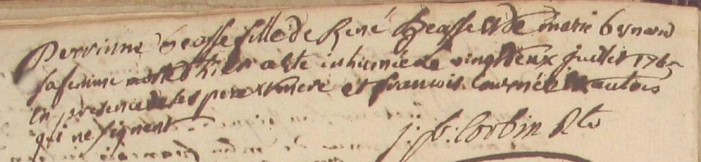 Perrinne heosse fille de René heosse et de marie besnard
sa femme morte d'hier a été inhumée le vingt deux juillet 1765
en presence de ses pere et mere et francois et autres
qui ne signent
j: f: Corbin Rte